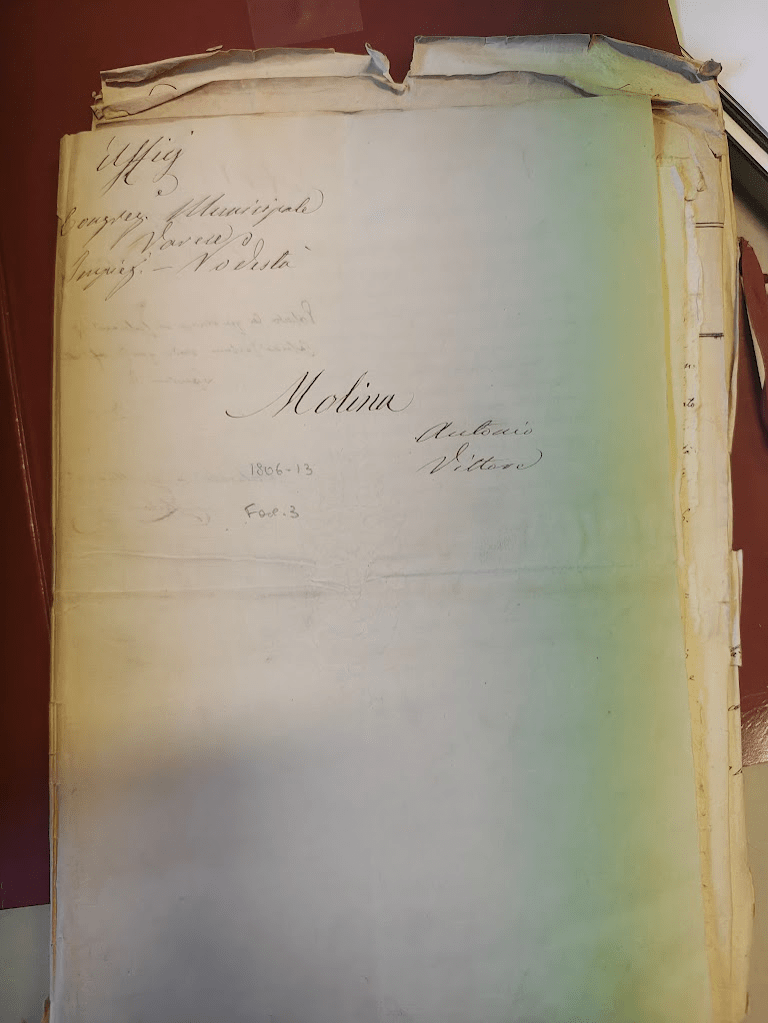 Uffizj
Congreg. Municipale
Varese
Impieg. - Podestà
Molina
Antonio
Vittore
1806-13
Fasc. 3